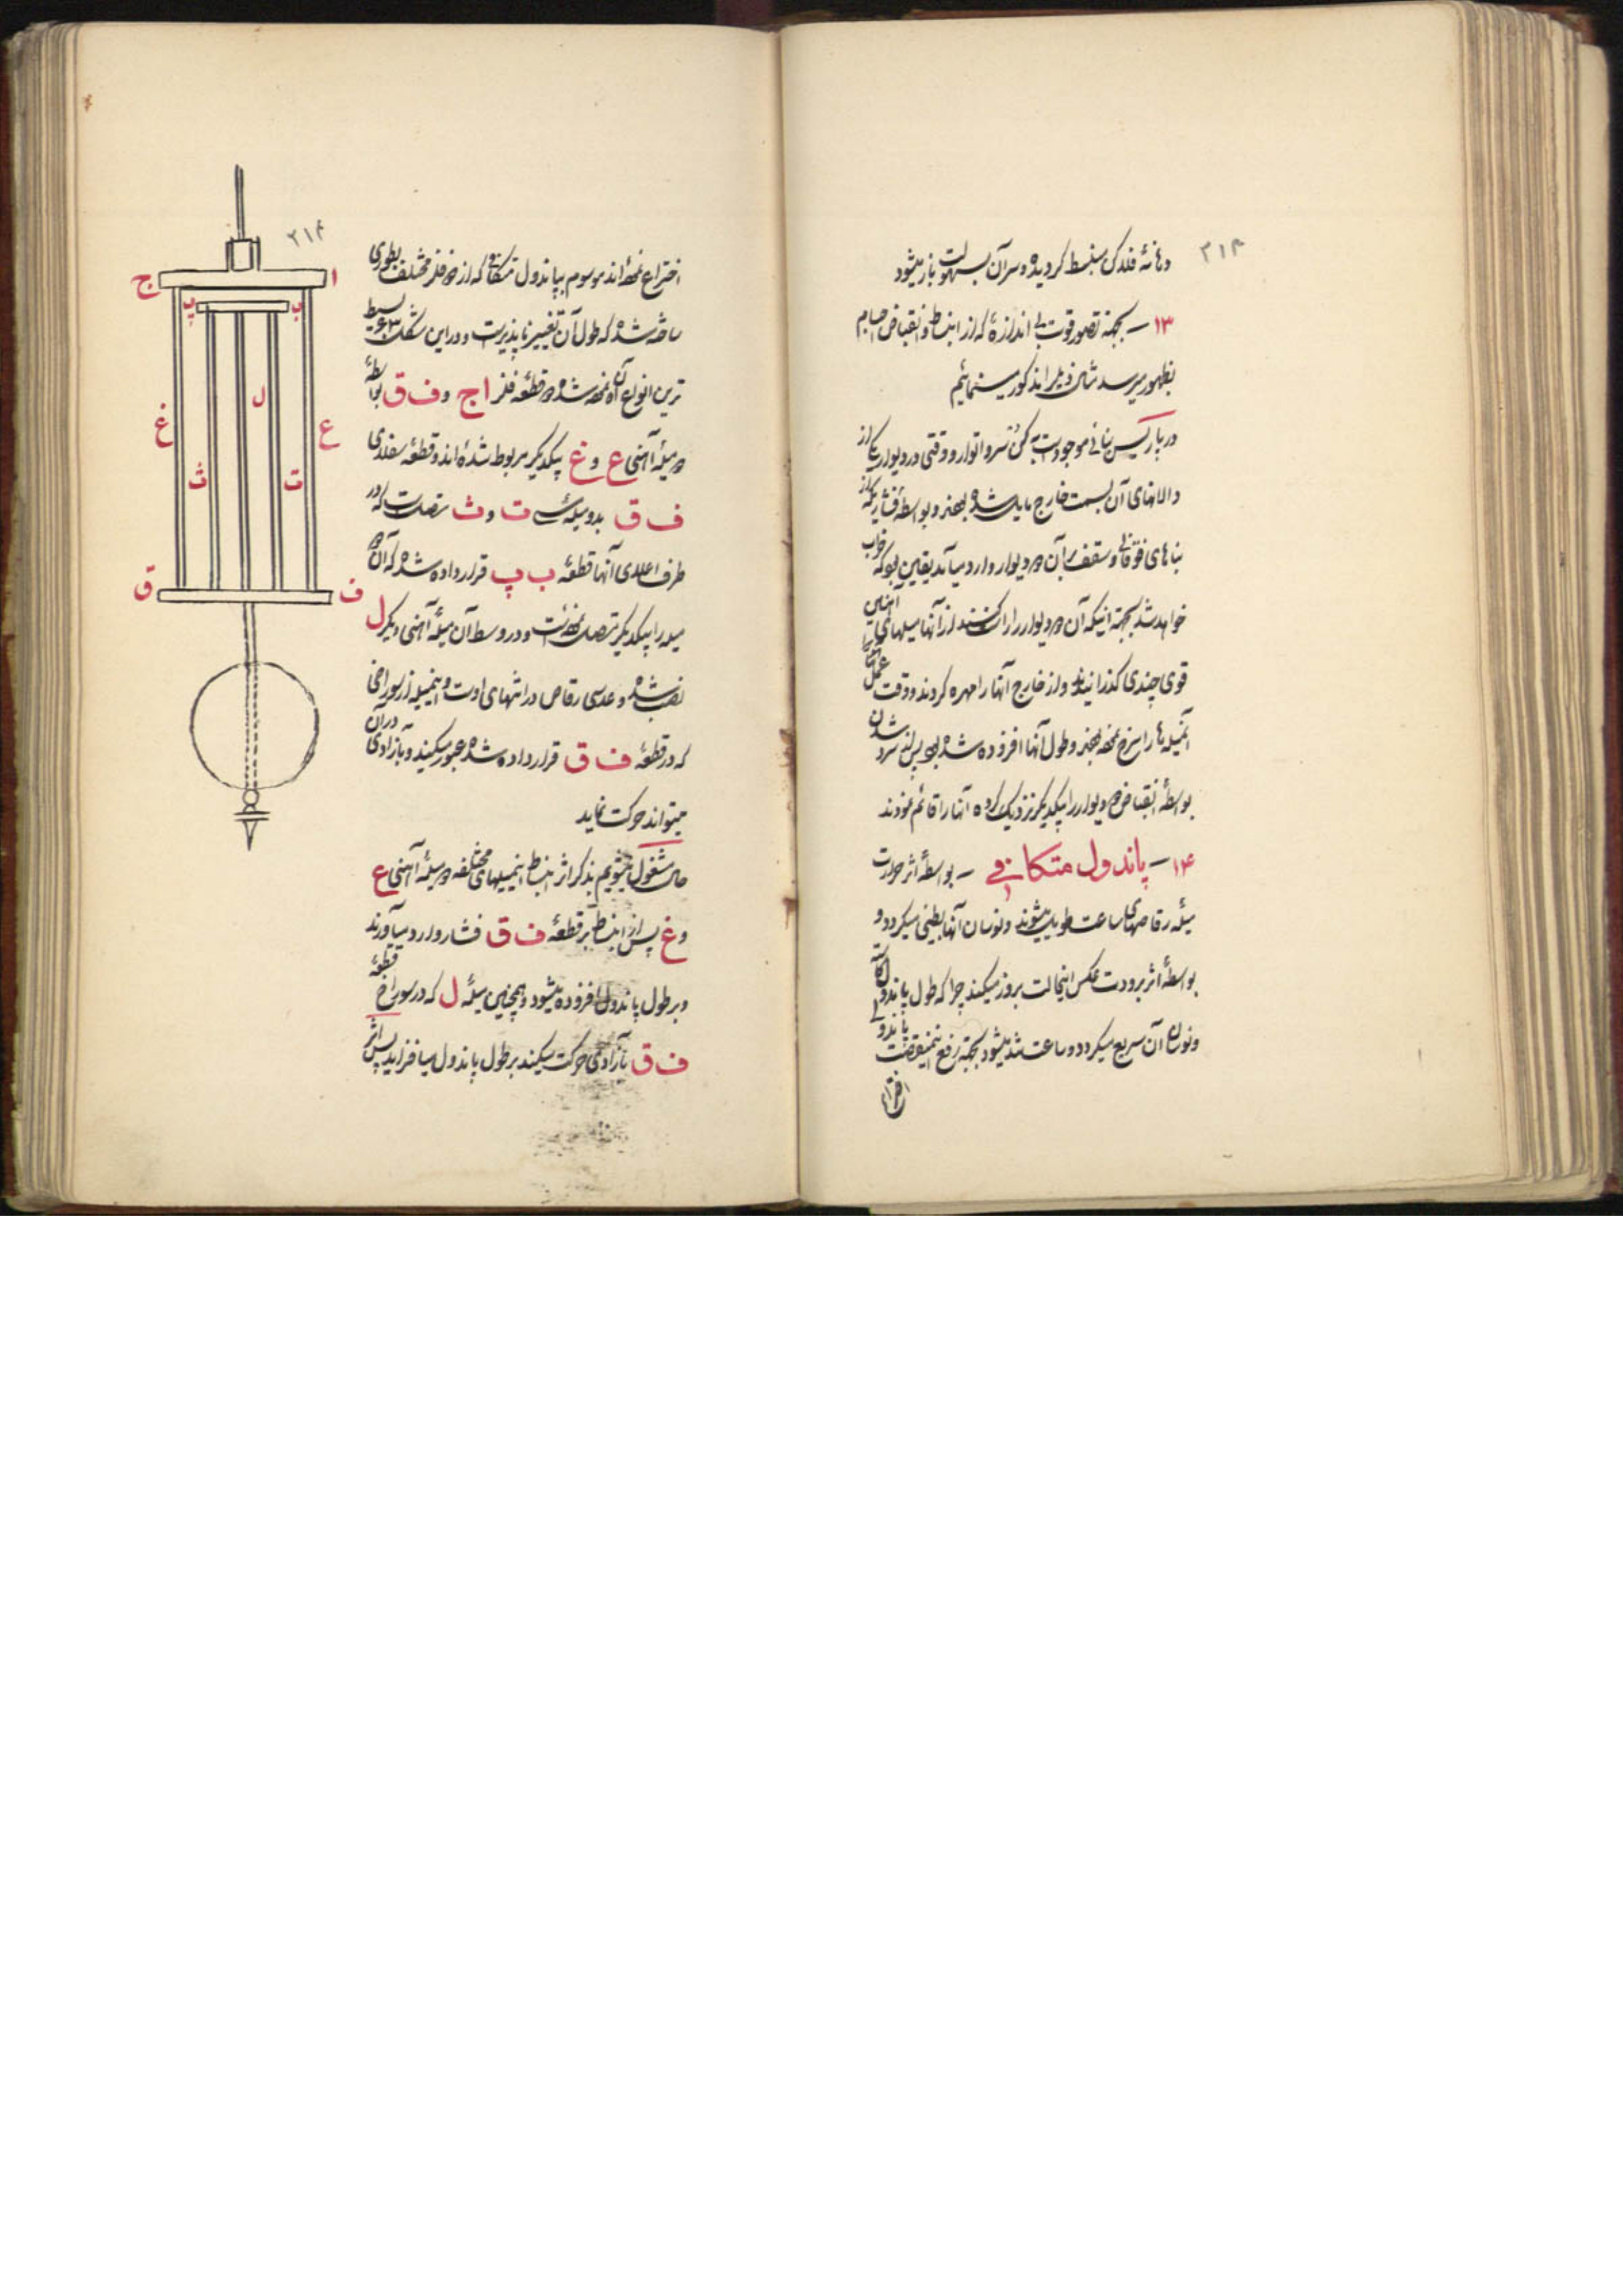 ۳۱۳
دهانهٔ فلدکی منبسط گردیده و سر آن بسهولت باز میشود
۱۳ – بجهته تصور قوت بی اندازهٔ که از انبساط و انقباض اجسام
بظهور میرسد مثال ذیل را مذکور مینمائیم
در پاریس بنائی موجود است
والانهای آن بسمت خارج مایل شده بودند و بواسطهٔ فشاریکه از
بناهای فوقانی و سقف بر آن دو دیوار وارد میآمد یقین بود که خراب
خواهد شد بجهته اینکه آن دو دیوار را راست کنند از آنها میلهای آهنین
قوی چندی گذرانیدند و از خارج آنها را مهره کردند و وقت عمل
اینمیله ها را سرخ نموده بودند و طول آنها افزوده شده بود پس از سرد شدن
بواسطهٔ انقباض دو دیوار را بیکدیگر نزدیک کرده آنها را قائم نمودند
۱۴ – پاندول متکافی – بواسطهٔ اثر حرارت
میلهٔ رقاصهای ساعت طویل میشوند و نوسان آنها بطیئی میگردد و
بواسطهٔ اثر برودت عکس اینحالت بروز میکند چرا که طول پاندول کاسته
و نوسان آن سریع میگردد و ساعت تند میشود بجهته رفع اینمنقصت پاندولی
اختراع
۳۱۴
اختراع نموده اند موسوم بپاندول متکافی که از دو فلز مختلف بطوری
ساخته شده که طول آن تغییر ناپذیر است و در این شکل ۶۳ بسیط
ترین انواع آن نموده شده دو قطعه فلز ا ج و ف ق بواسطهٔ
دو میلهٔ آهنی ع و غ بیکدیگر مربوط شده اند و قطعهٔ سفلای
ف ق بدو میلهٔ ت و ث متصل است که در
طرف اعلای آنها قطعهٔ ب پ قرار داده شده که آن دو
میله را بیکدیگر متصل نموده است و در وسط آن میلهٔ آهنی دیگر ل
نصب شده و عدسی رقاص در انتهای اوست و اینمیله از سوراخی
که در قطعهٔ ف ق قرار داده شده عبور میکند و بآزادی در آن
میتواند حرکت نماید
حال مشغول میشویم بذکر اثر انبساط اینمیلهای مختلفه دو میلهٔ آهنی ع
و غ پس از انبساط بر قطعهٔ ف ق فشار وارد میآورند
و بر طول پاندول افزوده میشود و همچنین میلهٔ ل که در سوراخ قطعهٔ
ف ق بآزادی حرکت میکند بر طول پاندول میافزاید پس اثر
ج
ا
پ
ب
ل
غ
ع
ث
ت
ق
ف